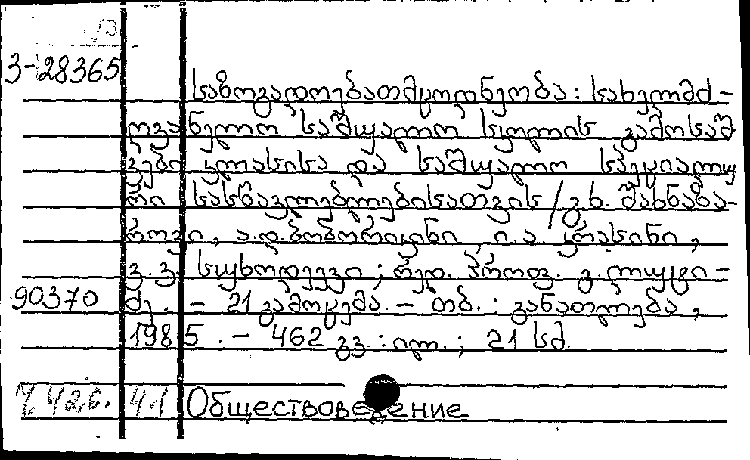 3-28365
საზოგადოებათმცოდნეობა: სახელმძ-
ღვანელო საშუალო სკოლის გამოსაშ
ვები კლასისა და საშუალო სპეციალუ
რი სასწავლებლებისათვის / გ.ხ. შახნაზა-
როვი, ა.დ. ბობორიკინი, ი.ა. კრასინი,
ვ.ვ. სუხოდეევი; რედ. პროფ. გ.
90370 ძე. – 21 გამოცემა. – თბ.: განათლება,
1985. – 462 გვ.: ილ.; 21 სმ.
Обществоведение